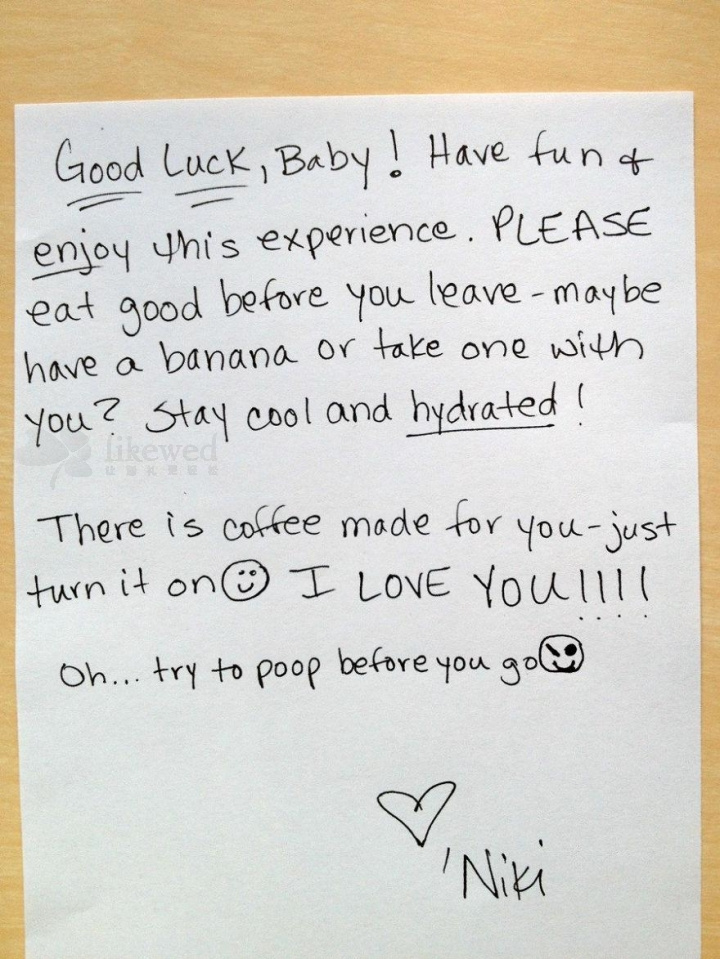 Good Luck, Baby! Have fun &
enjoy this experience. PLEASE
eat good before you leave - maybe
have a banana or take one with
you? Stay cool and hydrated!
likewed
There is coffee made for you - just
turn it on☺ I LOVE YOU!!!!
Oh... try to poop before you go😉
♡
'Niki